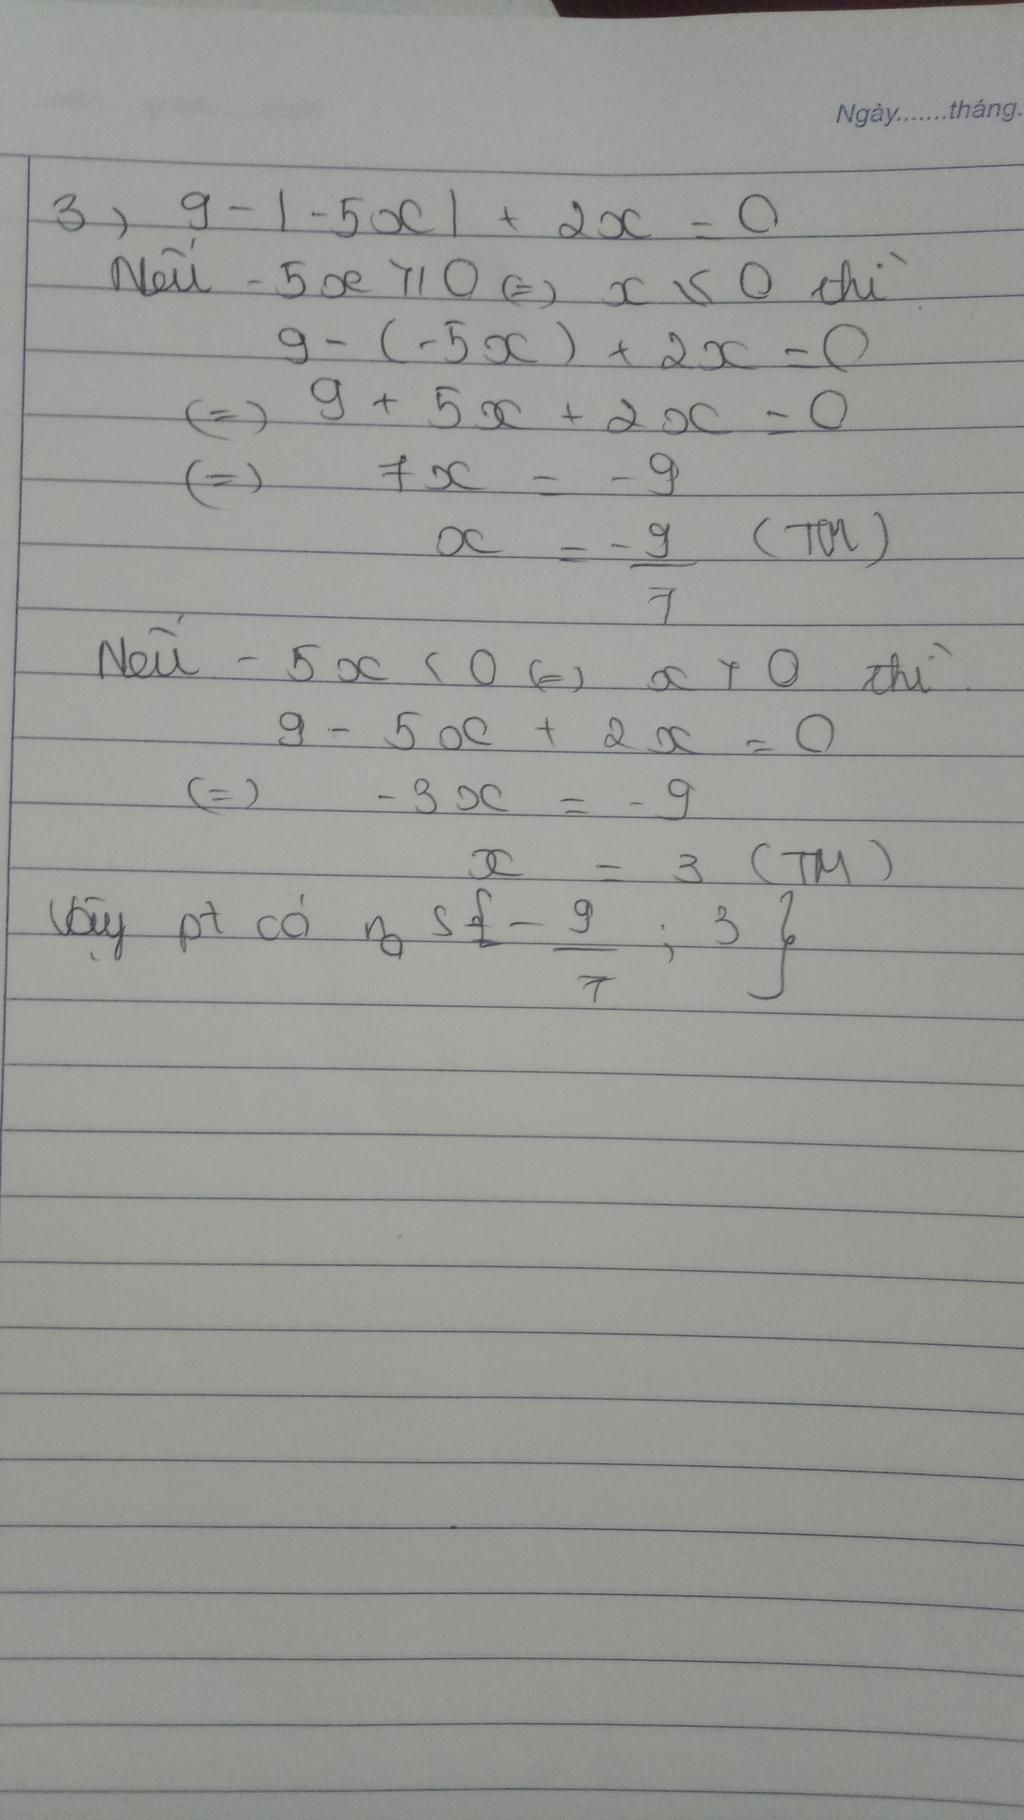 Ngày.......tháng.
3, 9 - |-5x| + 2x = 0
Nếu -5x ≥ 0 (=) x ≤ 0 thì
9 - (-5x) + 2x = 0
(=) 9 + 5x + 2x = 0
(=) 7x = -9
x = -9/7 (TM)
Nếu -5x < 0 (=) x > 0 thì
9 - 5x + 2x = 0
(=) -3x = -9
x = 3 (TM)
Vậy pt có no S{-9/7; 3}